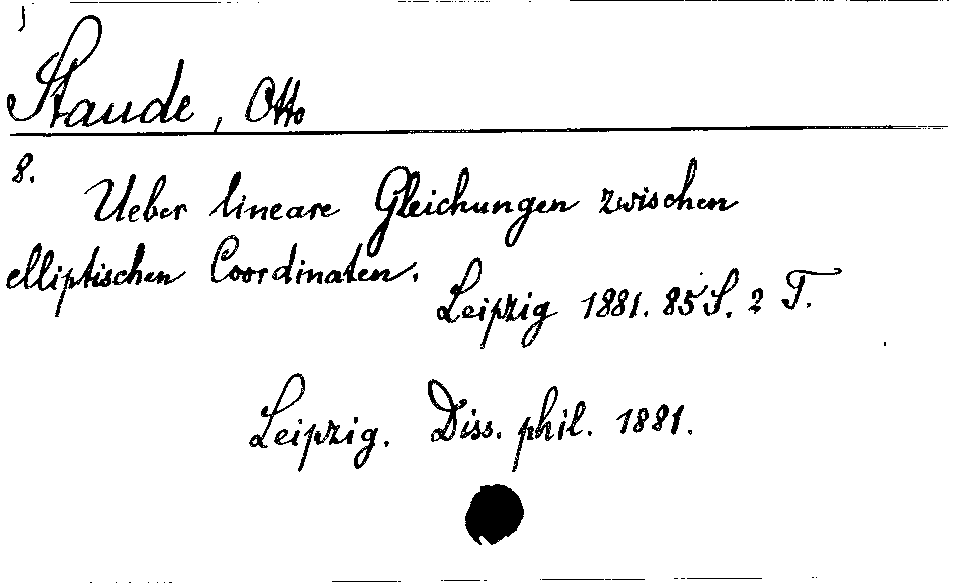 Staude, Otto
8.
Ueber lineare Gleichungen zwischen
elliptischen Coordinaten.
Leipzig 1881. 85 S. 2 T.
Leipzig. Diss. phil. 1881.